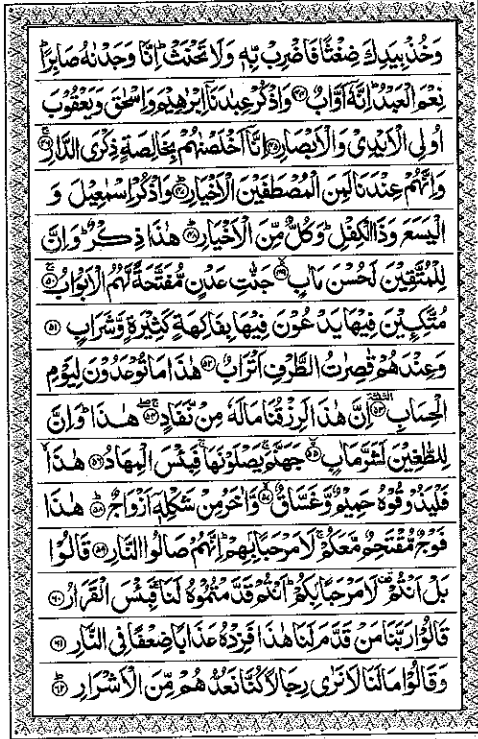 وَخُذْ بِيَدِكَ ضِغْثًا فَاضْرِبْ بِّهٖ وَلَا تَحْنَثْ ؕ اِنَّا وَجَدْنٰهُ صَابِرًا ؕ
نِعْمَ الْعَبْدُ ؕ اِنَّهٗۤ اَوَّابٌ ﴿۴۴﴾ وَاذْكُرْ عِبٰدَنَاۤ اِبْرٰهِيْمَ وَاِسْحٰقَ وَيَعْقُوْبَ
اُولِی الْاَيْدِیْ وَالْاَبْصَارِ ﴿۴۵﴾ اِنَّاۤ اَخْلَصْنٰهُمْ بِخَالِصَةٍ ذِكْرَی الدَّارِ ﴿۴۶﴾ۚ
وَاِنَّهُمْ عِنْدَنَا لَمِنَ الْمُصْطَفَيْنَ الْاَخْيَارِ ﴿۴۷﴾ؕ وَاذْكُرْ اِسْمٰعِيْلَ وَ
الْيَسَعَ وَذَا الْكِفْلِ ؕ وَكُلٌّ مِّنَ الْاَخْيَارِ ﴿۴۸﴾ؕ هٰذَا ذِكْرٌ ؕ وَاِنَّ
لِلْمُتَّقِيْنَ لَحُسْنَ مَاٰبٍ ﴿۴۹﴾ۙ جَنّٰتِ عَدْنٍ مُّفَتَّحَةً لَّهُمُ الْاَبْوَابُ ﴿۵۰﴾ۚ
مُتَّكِـِٕيْنَ فِيْهَا يَدْعُوْنَ فِيْهَا بِفَاكِهَةٍ كَثِيْرَةٍ وَّشَرَابٍ ﴿۵۱﴾
وَعِنْدَهُمْ قٰصِرٰتُ الطَّرْفِ اَتْرَابٌ ﴿۵۲﴾ هٰذَا مَا تُوْعَدُوْنَ لِيَوْمِ
الْحِسَابِ ﴿۵۳﴾ اِنَّ هٰذَا لَرِزْقُنَا مَا لَهٗ مِنْ نَّفَادٍ ﴿۵۴﴾ هٰذَا ؕ وَاِنَّ
لِلطّٰغِيْنَ لَشَرَّ مَاٰبٍ ﴿۵۵﴾ۙ جَهَنَّمَ ۚ يَصْلَوْنَهَا ۚ فَبِئْسَ الْمِهَادُ ﴿۵۶﴾ هٰذَا ۙ
فَلْيَذُوْقُوْهُ حَمِيْمٌ وَّغَسَّاقٌ ﴿۵۷﴾ۙ وَّاٰخَرُ مِنْ شَكْلِهٖۤ اَزْوَاجٌ ﴿۵۸﴾ؕ هٰذَا
فَوْجٌ مُّقْتَحِمٌ مَّعَكُمْ ۚ لَا مَرْحَبًۢا بِهِمْ ؕ اِنَّهُمْ صَالُوا النَّارِ ﴿۵۹﴾ قَالُوْا
بَلْ اَنْتُمْ ۟ لَا مَرْحَبًۢا بِكُمْ ؕ اَنْتُمْ قَدَّمْتُمُوْهُ لَنَا ۚ فَبِئْسَ الْقَرَارُ ﴿۶۰﴾
قَالُوْا رَبَّنَا مَنْ قَدَّمَ لَنَا هٰذَا فَزِدْهُ عَذَابًا ضِعْفًا فِی النَّارِ ﴿۶۱﴾
وَقَالُوْا مَا لَنَا لَا نَرٰی رِجَالًا كُنَّا نَعُدُّهُمْ مِّنَ الْاَشْرَارِ ﴿۶۲﴾ؕ